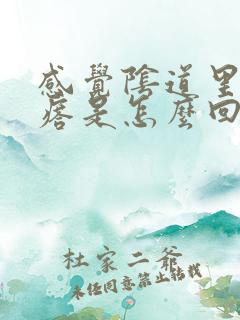 感覺陰道里
痞是怎麼回
杜家二爺
未經同意禁止轉載